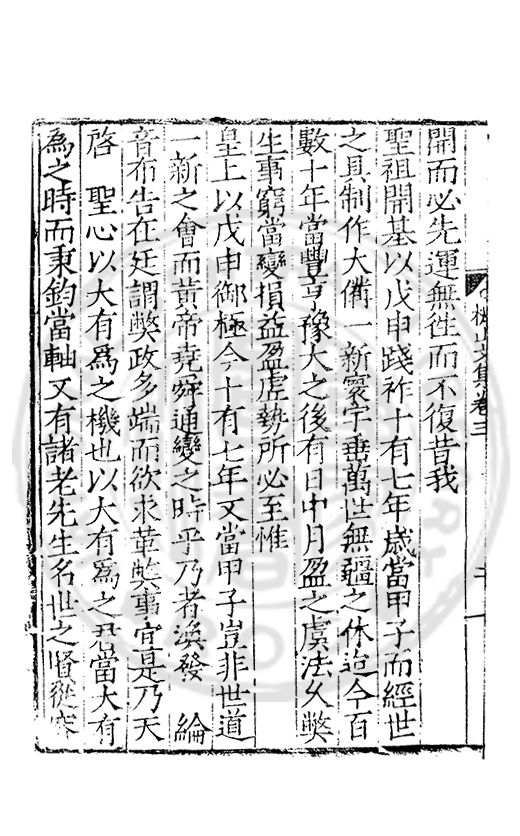 開而必先運無徃而不復昔我
聖祖開基以戊申踐祚十有七年歲當甲子而經世
之具制作大備一新寰宇垂萬世無疆之休迨今百
數十年當豐亨豫大之後有日中月盈之虞法久弊
生事窮當變損益盈虛勢所必至惟
皇上以戊申御極今十有七年又當甲子豈非世道
一新之會而黃帝堯舜通變之時乎乃者渙發　綸
音布告在廷謂弊政多端而欲求革弊事宜是乃天
啓　聖心以大有爲之機也以大有爲之君當大有
爲之時而秉鈞當軸又有諸老先生名世之賢從容
文集卷三